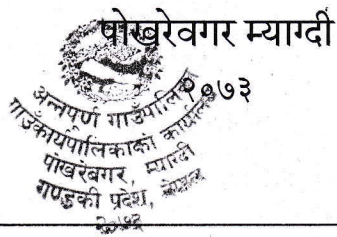 पोखरेवगर म्याग्दी
२०७३
अन्नपूर्ण गाउँपालिका
गाउँकार्यपालिकाको कार्यालय
पोखरेबगर, म्याग्दी
गण्डकी प्रदेश, नेपाल
२०७३